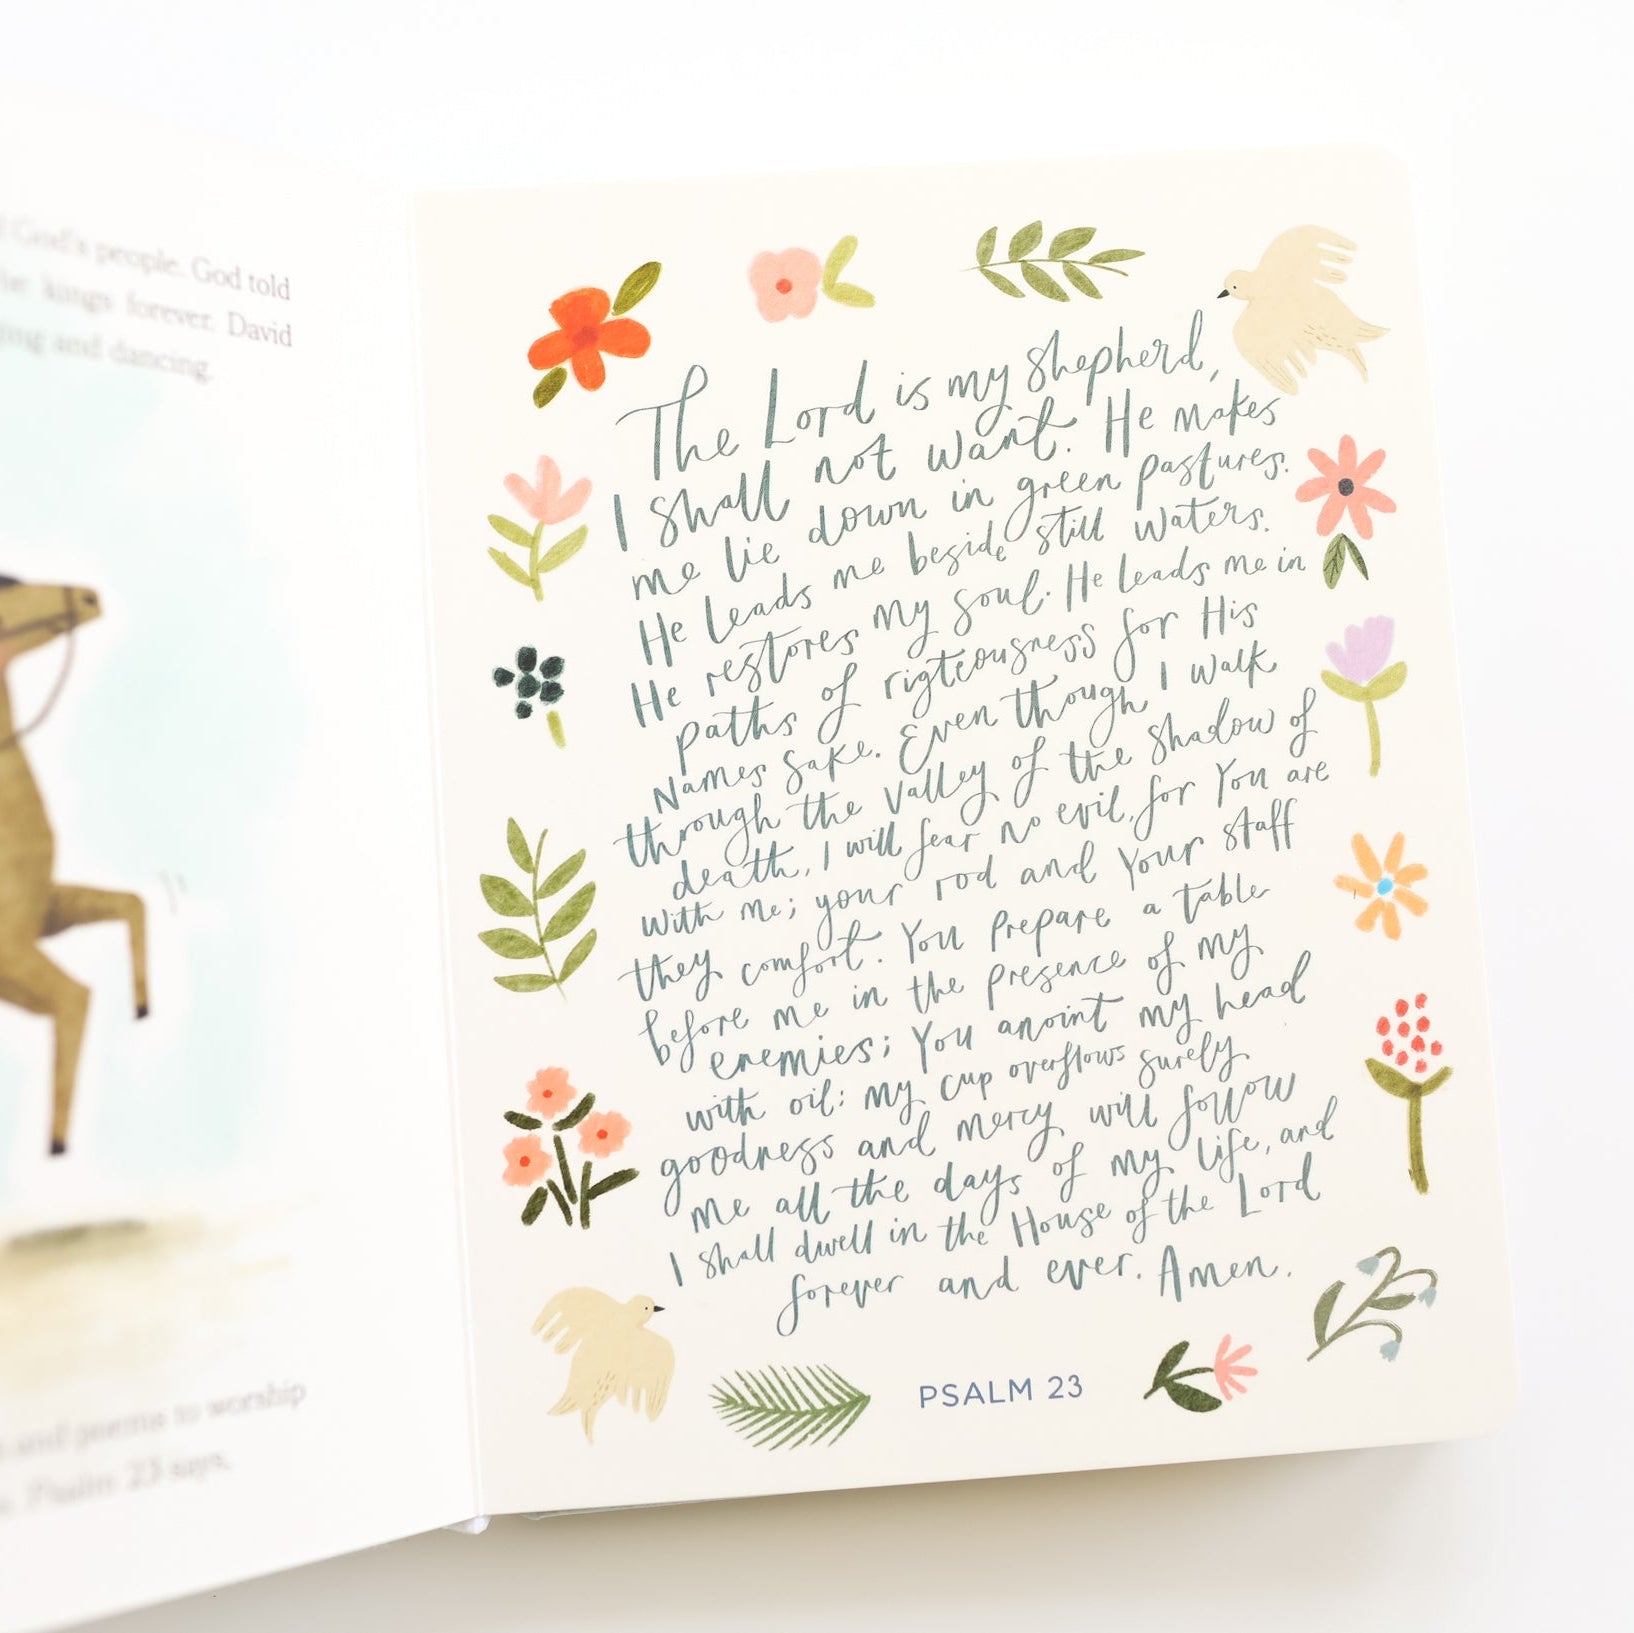 God's people. God told
kings forever. David
and dancing.
and poems to worship
Psalm 23 says,
The Lord is my shepherd,
I shall not want. He makes
me lie down in green pastures.
He leads me beside still waters.
He restores my soul. He leads me in
paths of rigteousness for His
Names sake. Even though I walk
through the valley of the shadow of
death, I will fear no evil, for You are
with me; your rod and Your staff
they comfort. You prepare a table
before me in the presence of my
enemies; You anoint my head
with oil; my cup overflows surely
goodness and mercy will follow
me all the days of my life, and
I shall dwell in the House of the Lord
forever and ever. Amen.
PSALM 23